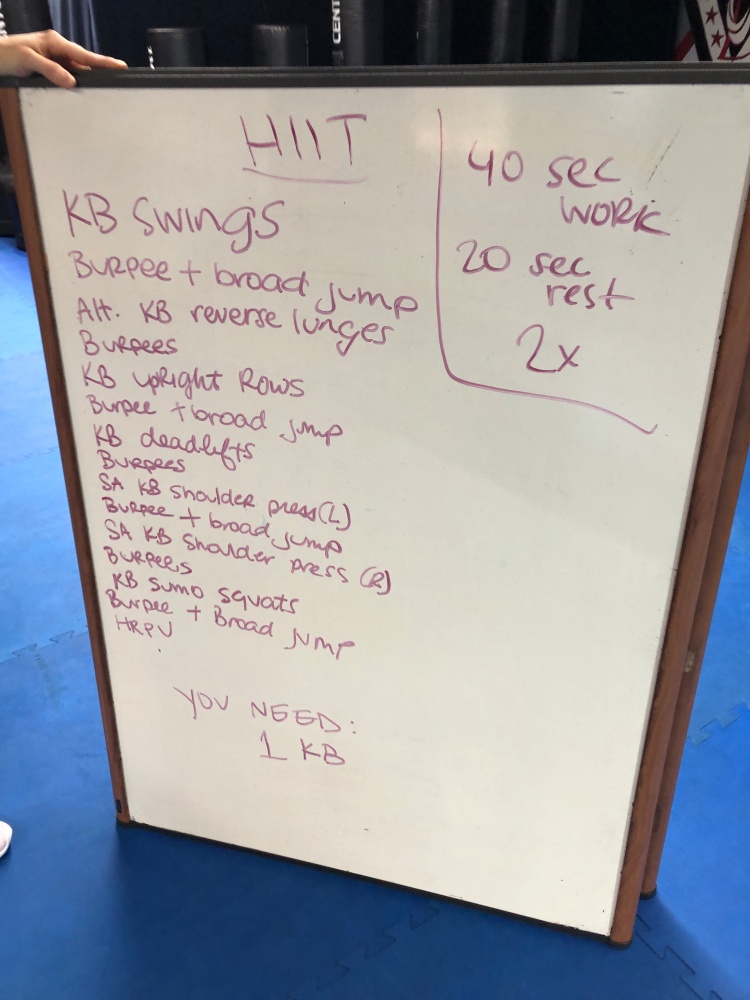 CENT
HIIT
KB SWINGS
BURPEE + broad jump
Alt. KB reverse lunges
BURPEES
KB UPRIGHT ROWS
Burpee + broad jump
KB deadlifts
BURPEES
SA KB shoulder press (L)
BURPEE + broad jump
SA KB shoulder press (R)
BURPEES
KB SUMO SQUATS
Burpee + Broad jump
HRPU
YOU NEED:
1 KB
40 sec
WORK
20 sec
rest
2x